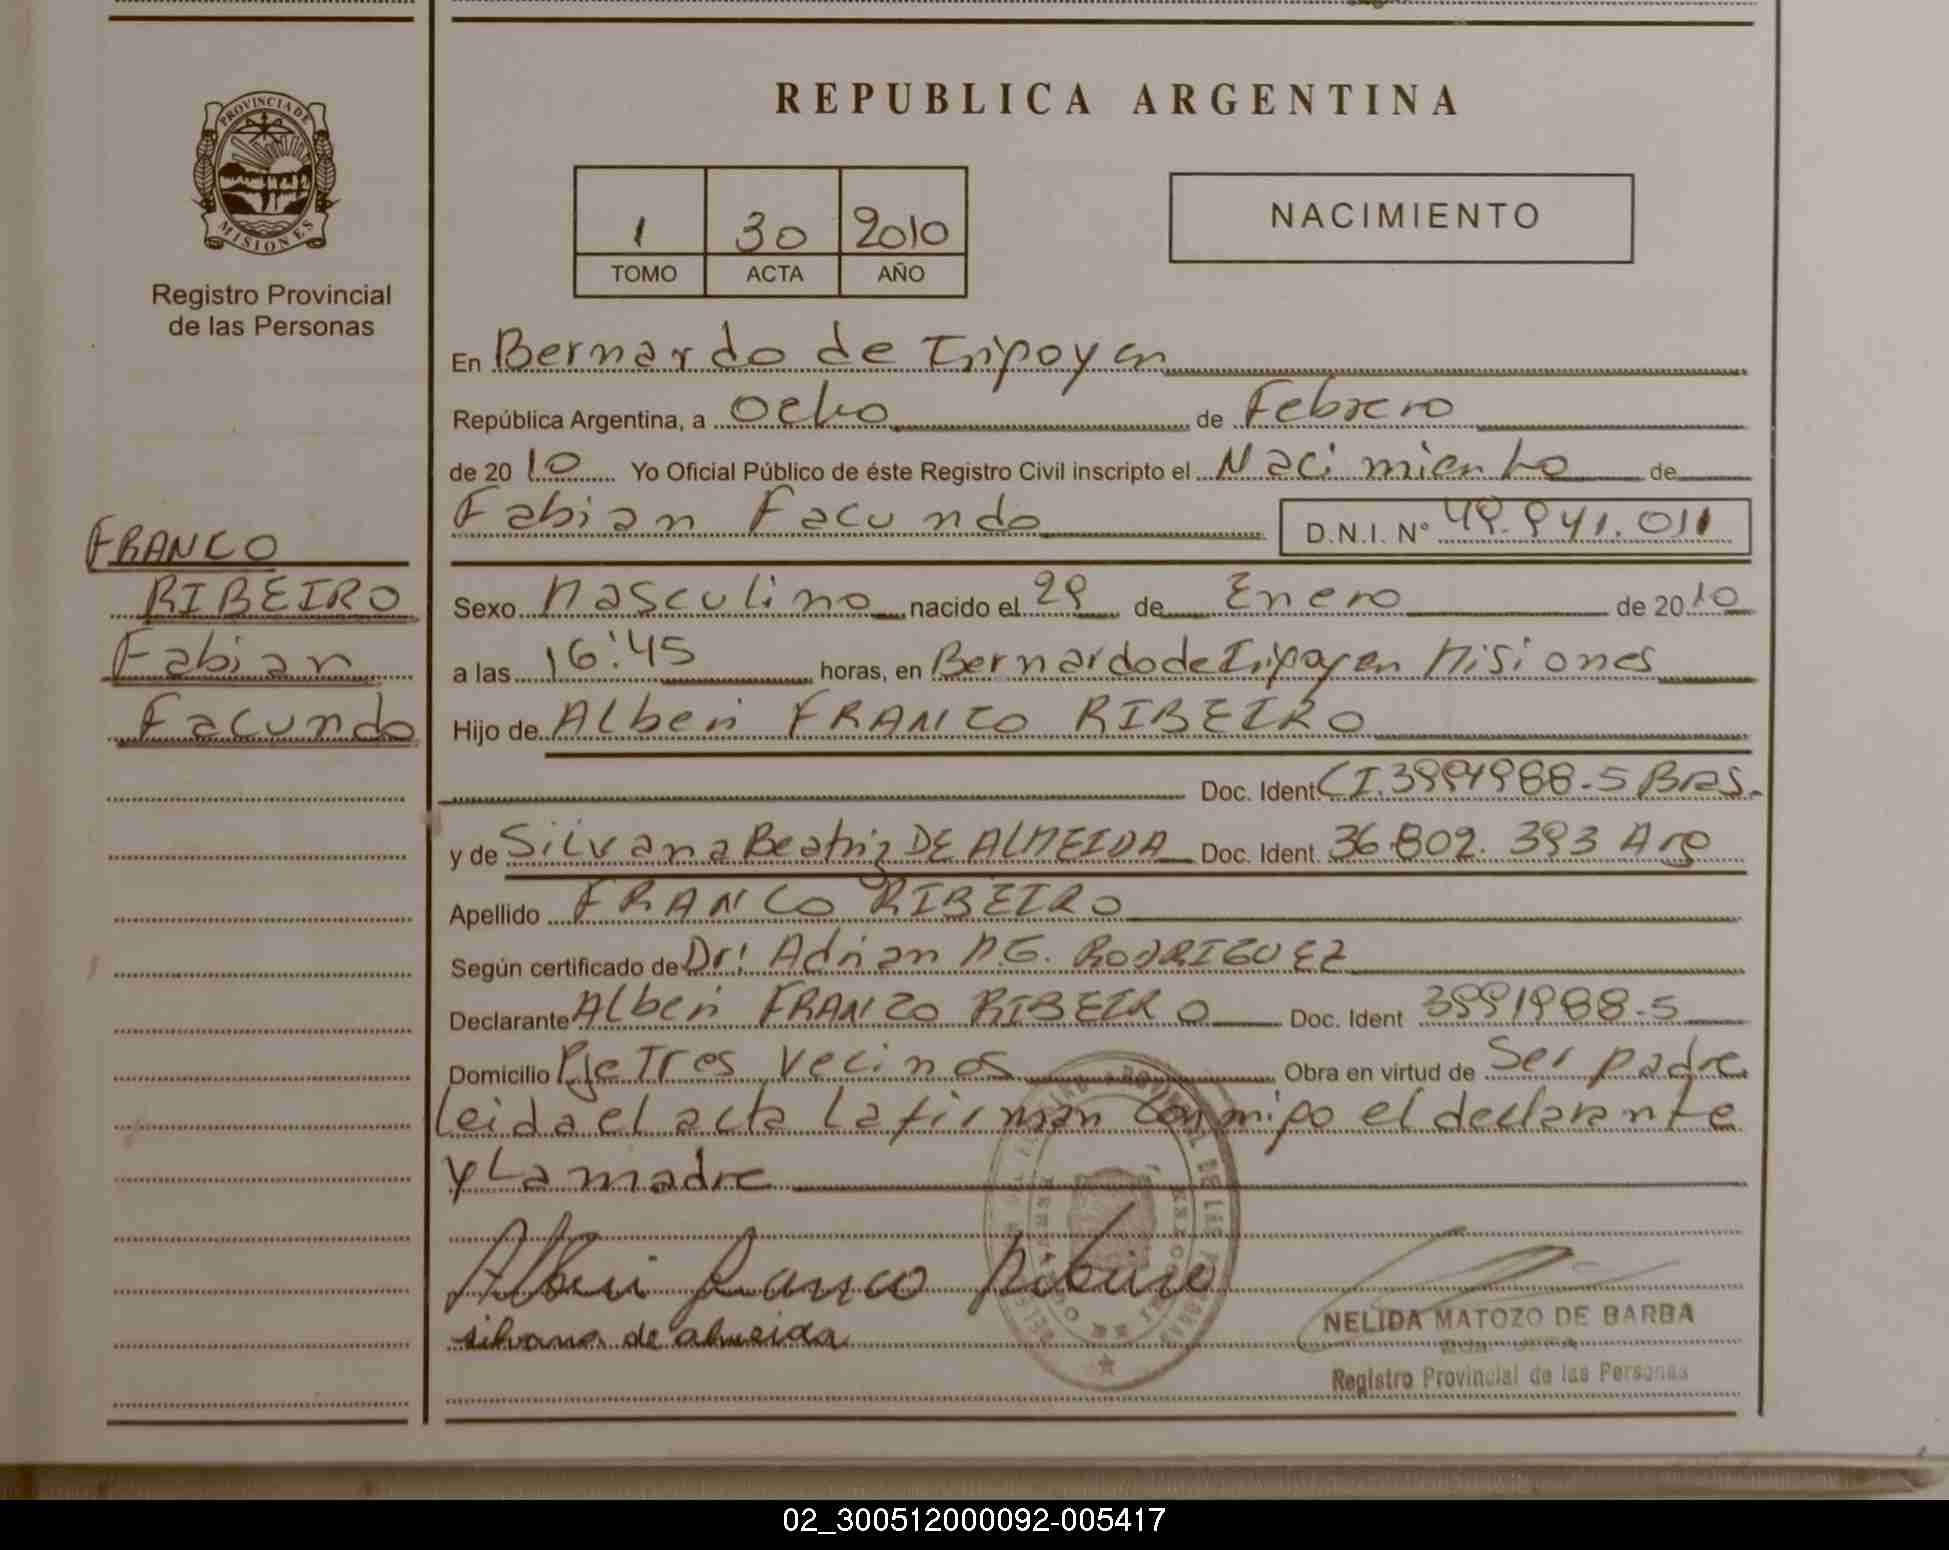 REPUBLICA ARGENTINA
PROVINCIA DE
MISIONES
Registro Provincial
de las Personas
1 30 2010
TOMO ACTA AÑO
NACIMIENTO
FRANCO
RIBEIRO
Fabian
Facundo
En Bernardo de Irigoyen
República Argentina, a Ocho de Febrero
de 2010 Yo Oficial Público de éste Registro Civil inscripto el Nacimiento de
Fabian Facundo D.N.I. Nº
Sexo Masculino nacido el 29 de Enero de 2010
a las 16:45 horas, en Bernardo de Irigoyen Misiones
Hijo de Alberi FRANCO RIBEIRO
Doc. Ident CI. Bras.
y de Silvana Beatriz DE ALMEIDA Doc. Ident. 36.802.393 Arg
Apellido FRANCO RIBEIRO
Según certificado de Dr: Adrian A.G. RODRIGUEZ
Declarante Alberi FRANCO RIBEIRO Doc. Ident
Domicilio Pje Tres Vecinos Obra en virtud de Ser padre
leida el acta la firman conmigo el declarante
y La madre
Alberi Franco Ribeiro
silvana de almeida
NELIDA MATOZO DE BARBA
Registro Provincial de las Personas
02_300512000092-005417